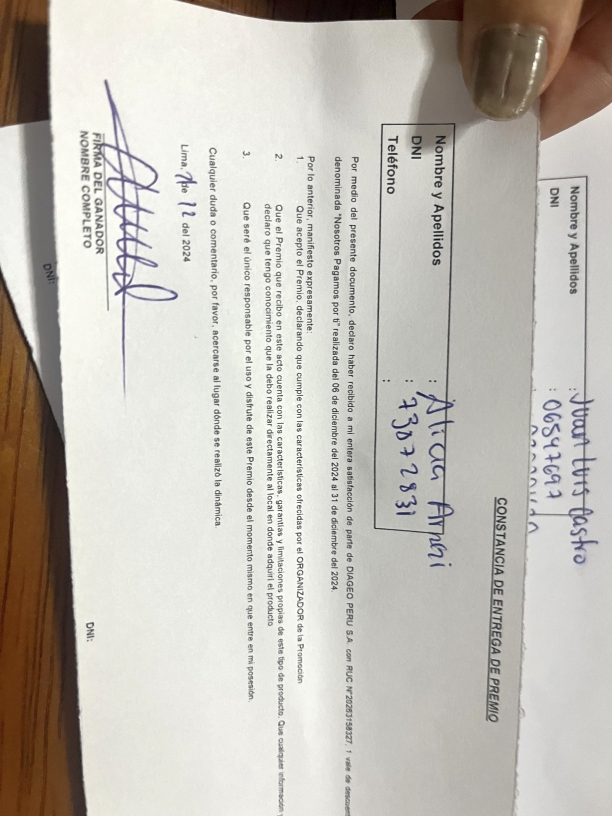 CONSTANCIA DE ENTREGA DE PREMIO
Nombre y Apellidos : Alicia
DNI : 73072831
Teléfono :
Por medio del presente documento, declaro haber recibido a mi entera satisfacción de parte de DIAGEO PERU S.A. con RUC N°20263158327, 1 vale de
denominada "Nosotros Pagamos por ti" realizada del 06 de diciembre del 2024 al 31 de diciembre del 2024.
Por lo anterior, manifiesto expresamente:
1. Que acepto el Premio, declarando que cumple con las características ofrecidas por el ORGANIZADOR de la Promoción
2. Que el Premio que recibo en este acto cuenta con las características, garantías y limitaciones propias de este tipo de producto. Que cualquier información
declaro que tengo conocimiento que la debo realizar directamente al local en donde adquirí el producto
3. Que seré el único responsable por el uso y disfrute de este Premio desde el momento mismo en que entre en mi posesión.
Cualquier duda o comentario, por favor, acercarse al lugar dónde se realizó la dinámica.
Lima, de 12 del 2024
FIRMA DEL GANADOR
NOMBRE COMPLETO
DNI:
DNI:
Nombre y Apellidos : Juan Luis Castro
DNI : 06547697